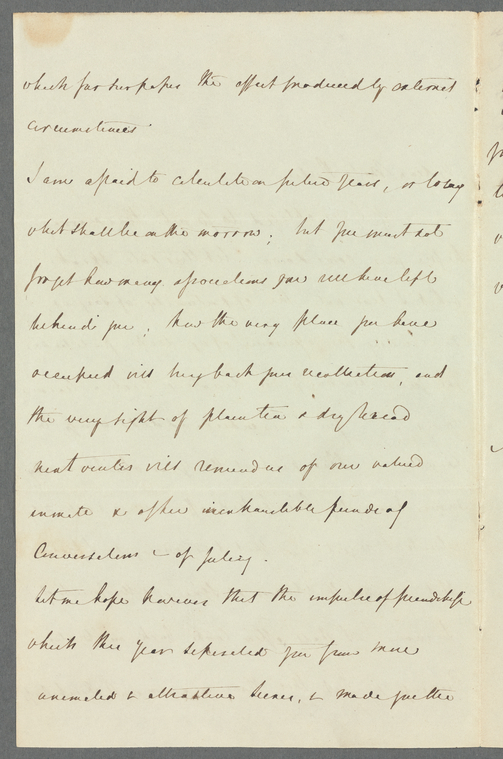 which far surpasses the effect produced by external
circumstances.
I am afraid to calculate on future years, or to say
what shall be on the morrow; but you must not
forget how many associations you will have left
behind you; how the very place you have
occupied will bring back your recollection, and
the very sight of plain tea & dry bread
next winter will remind us of our valued
inmate & of her inexhaustible funds of
Conversations & of
Let me hope however that the impulse of friendship
which this year separated you from more
animated & attractive scenes, & made you the